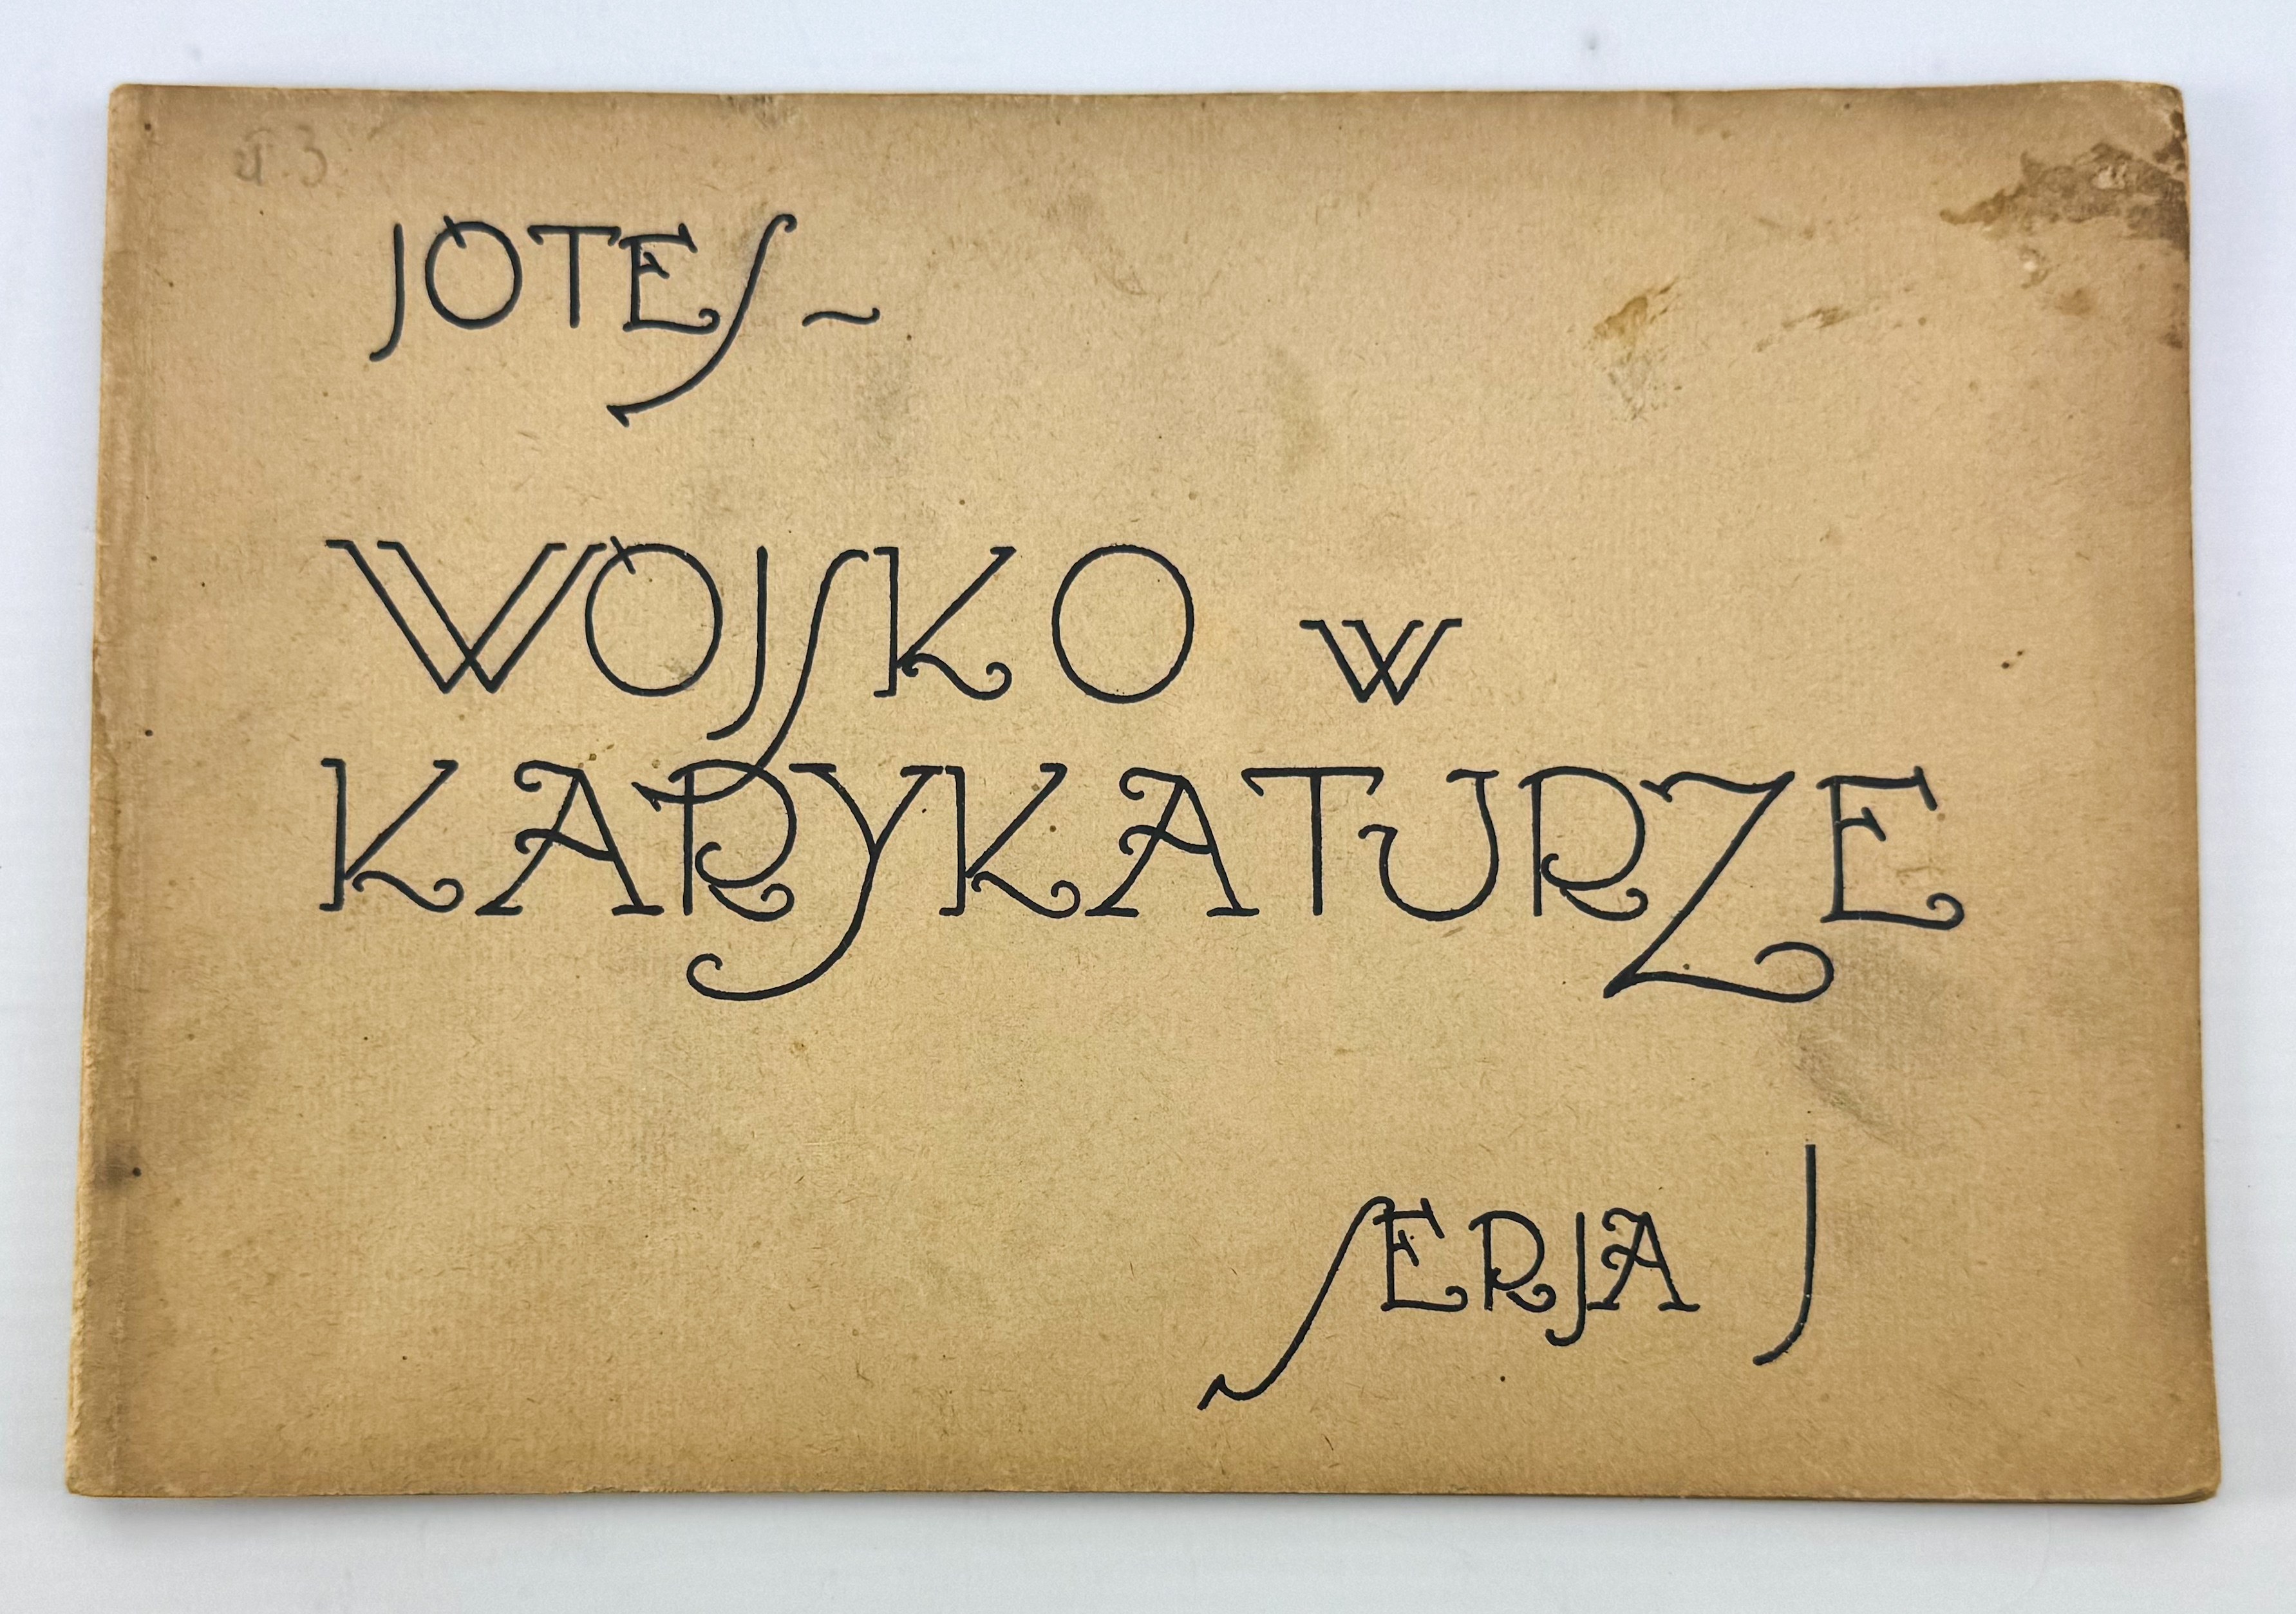 JOTES ~
WOJSKO w
KARYKATURZE
SERJA I